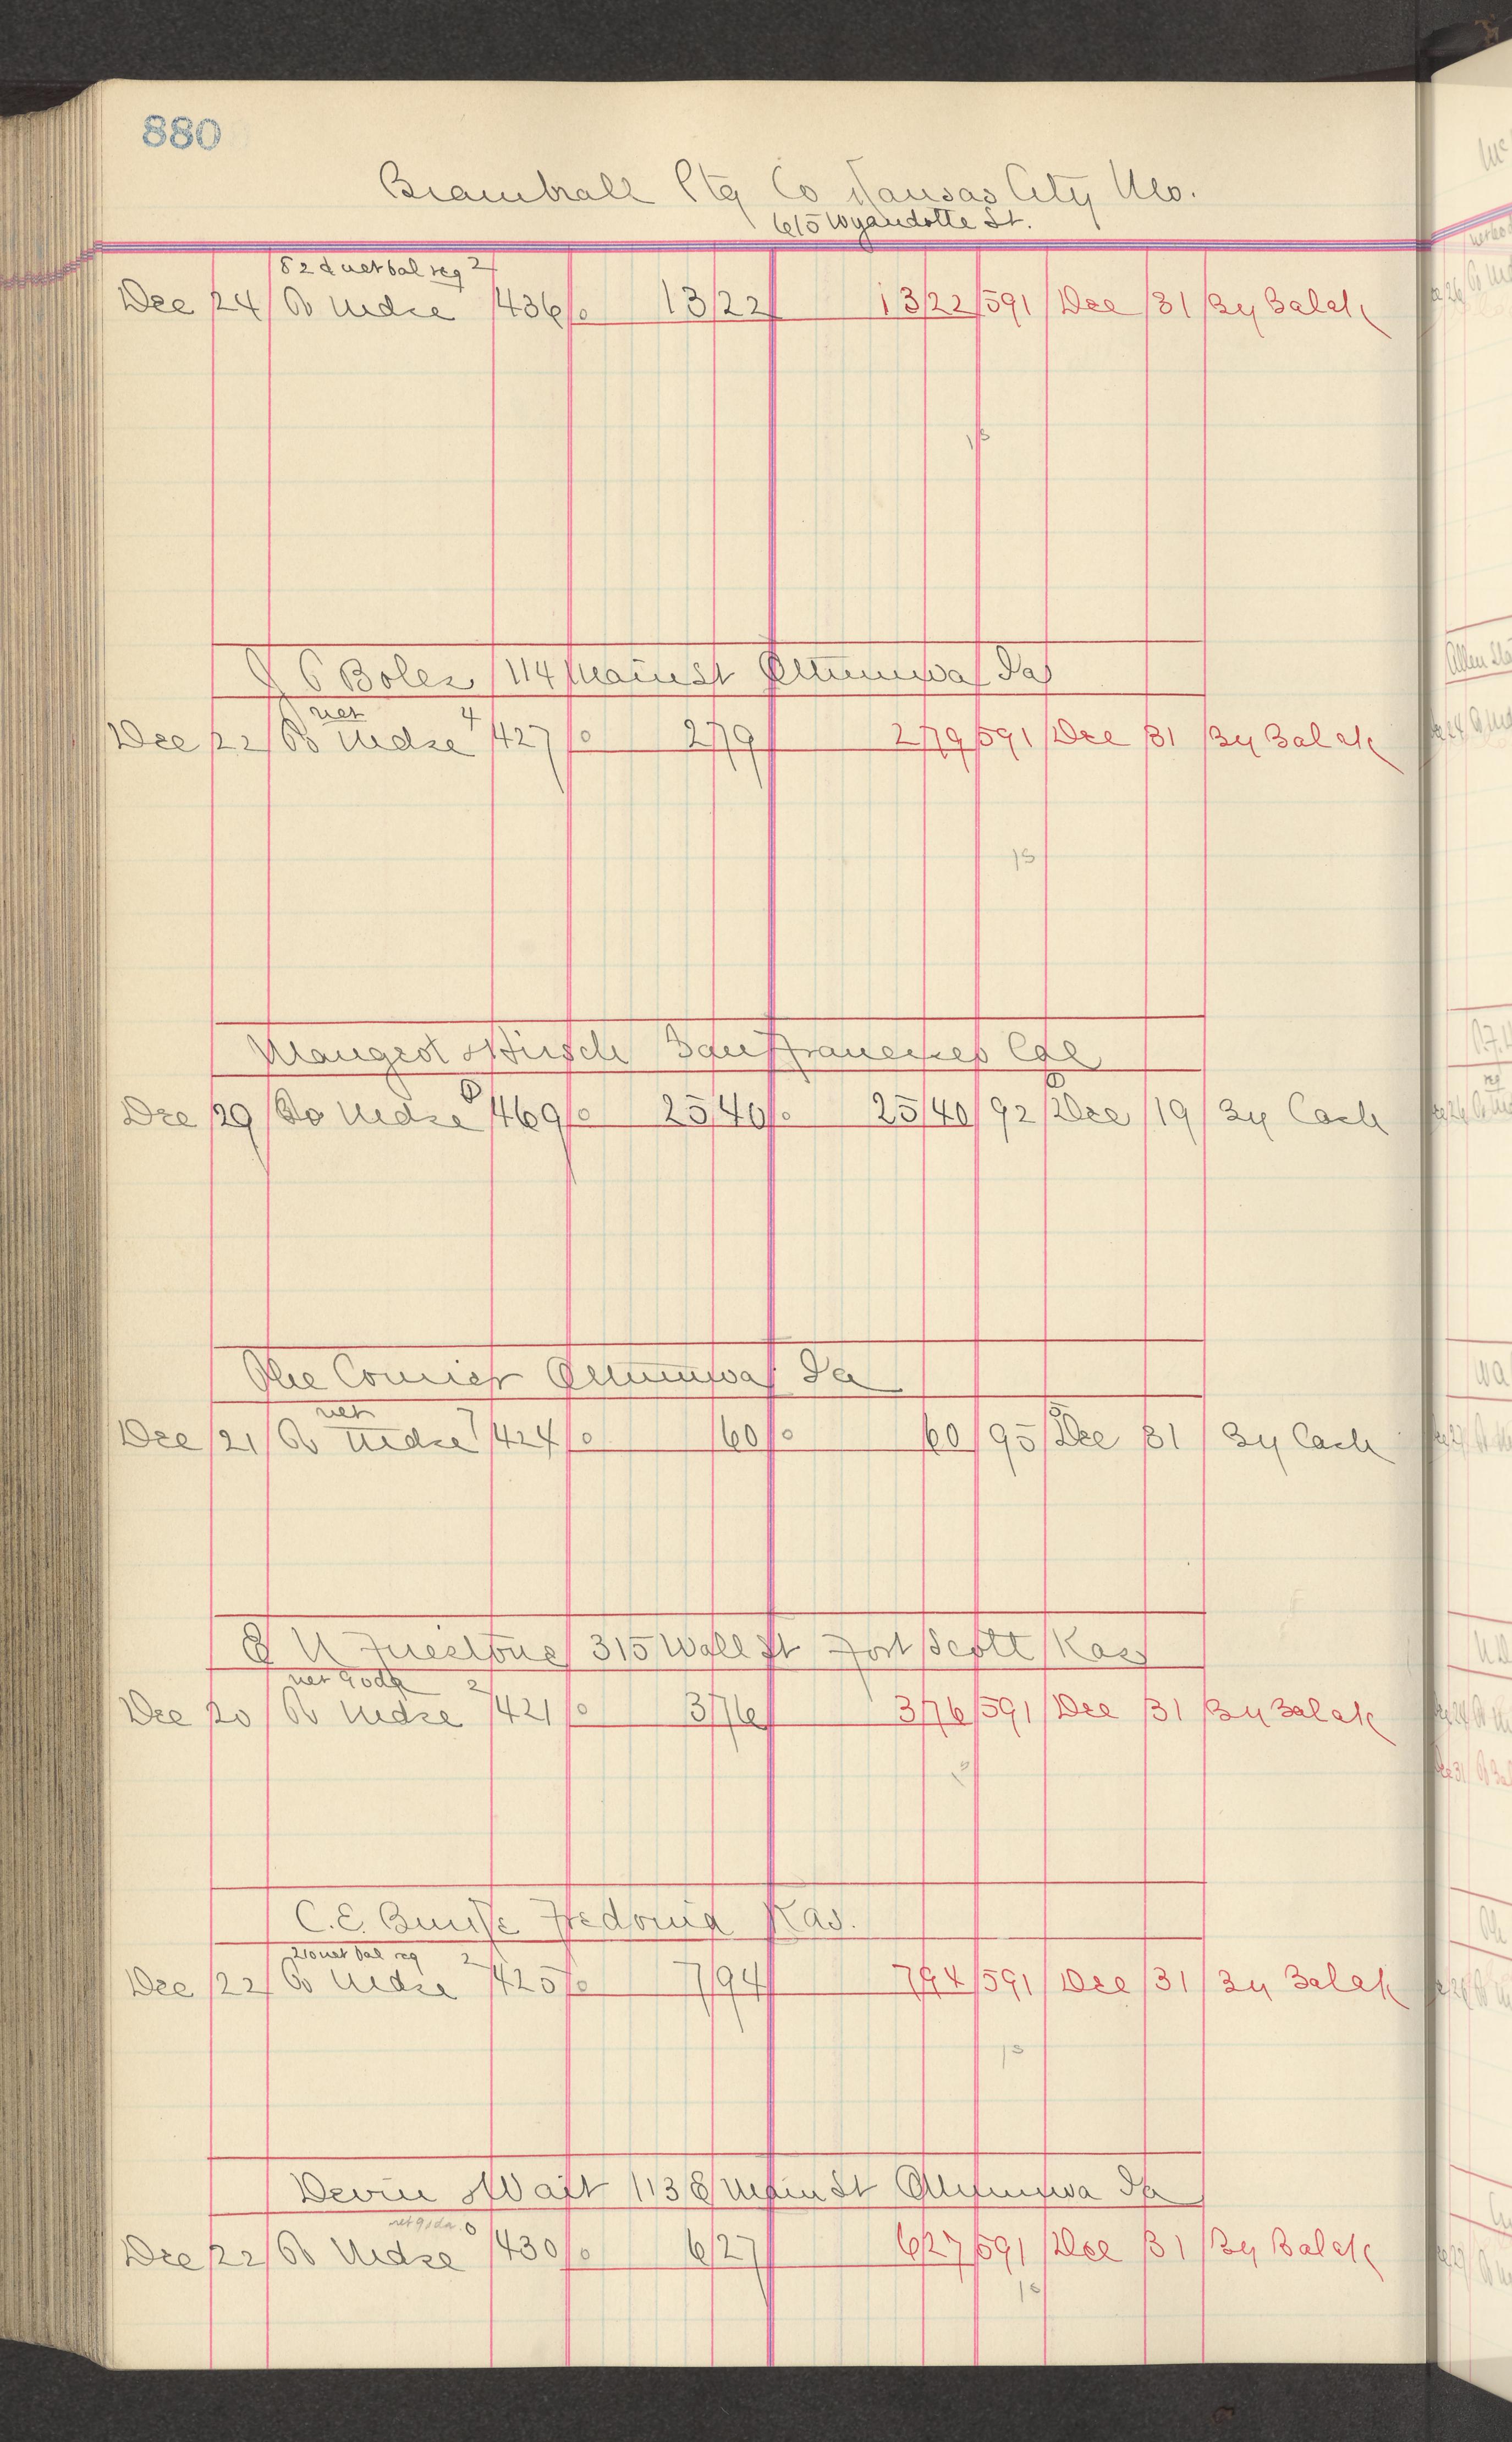 880
Bramhall Ptg Co Kansas City Mo.
615 Wyandotte St.
net bal reg 2
Dec 24 To Mdse 436 13 22 13 22 591 Dec 31 By Balak
15
J C Boles 114 Main St Ottumwa Ia
net 4
Dec 22 To Mdse 427 2 79 2 79 591 Dec 31 By Balak
15
& Hirsch San Francisco Cal
Dec 29 To Mdse 469 25 40 25 40 92 Dec 19 By Cash
The Courier Ottumwa Ia
net 7
Dec 21 To Mdse 424 60 60 95 Dec 31 By Cash
315 Wall St Fort Scott Kas
net 90da 2
Dec 20 To Mdse 421 3 76 3 76 591 Dec 31 By Balak
C. E. Fredonia Kas.
net bal reg 2
Dec 22 To Mdse 425 7 94 7 94 591 Dec 31 By Balak
13
Devin & Wait 113 E Main St Ottumwa Ia
net
Dec 22 To Mdse 430 6 27 6 27 591 Dec 31 By Balak